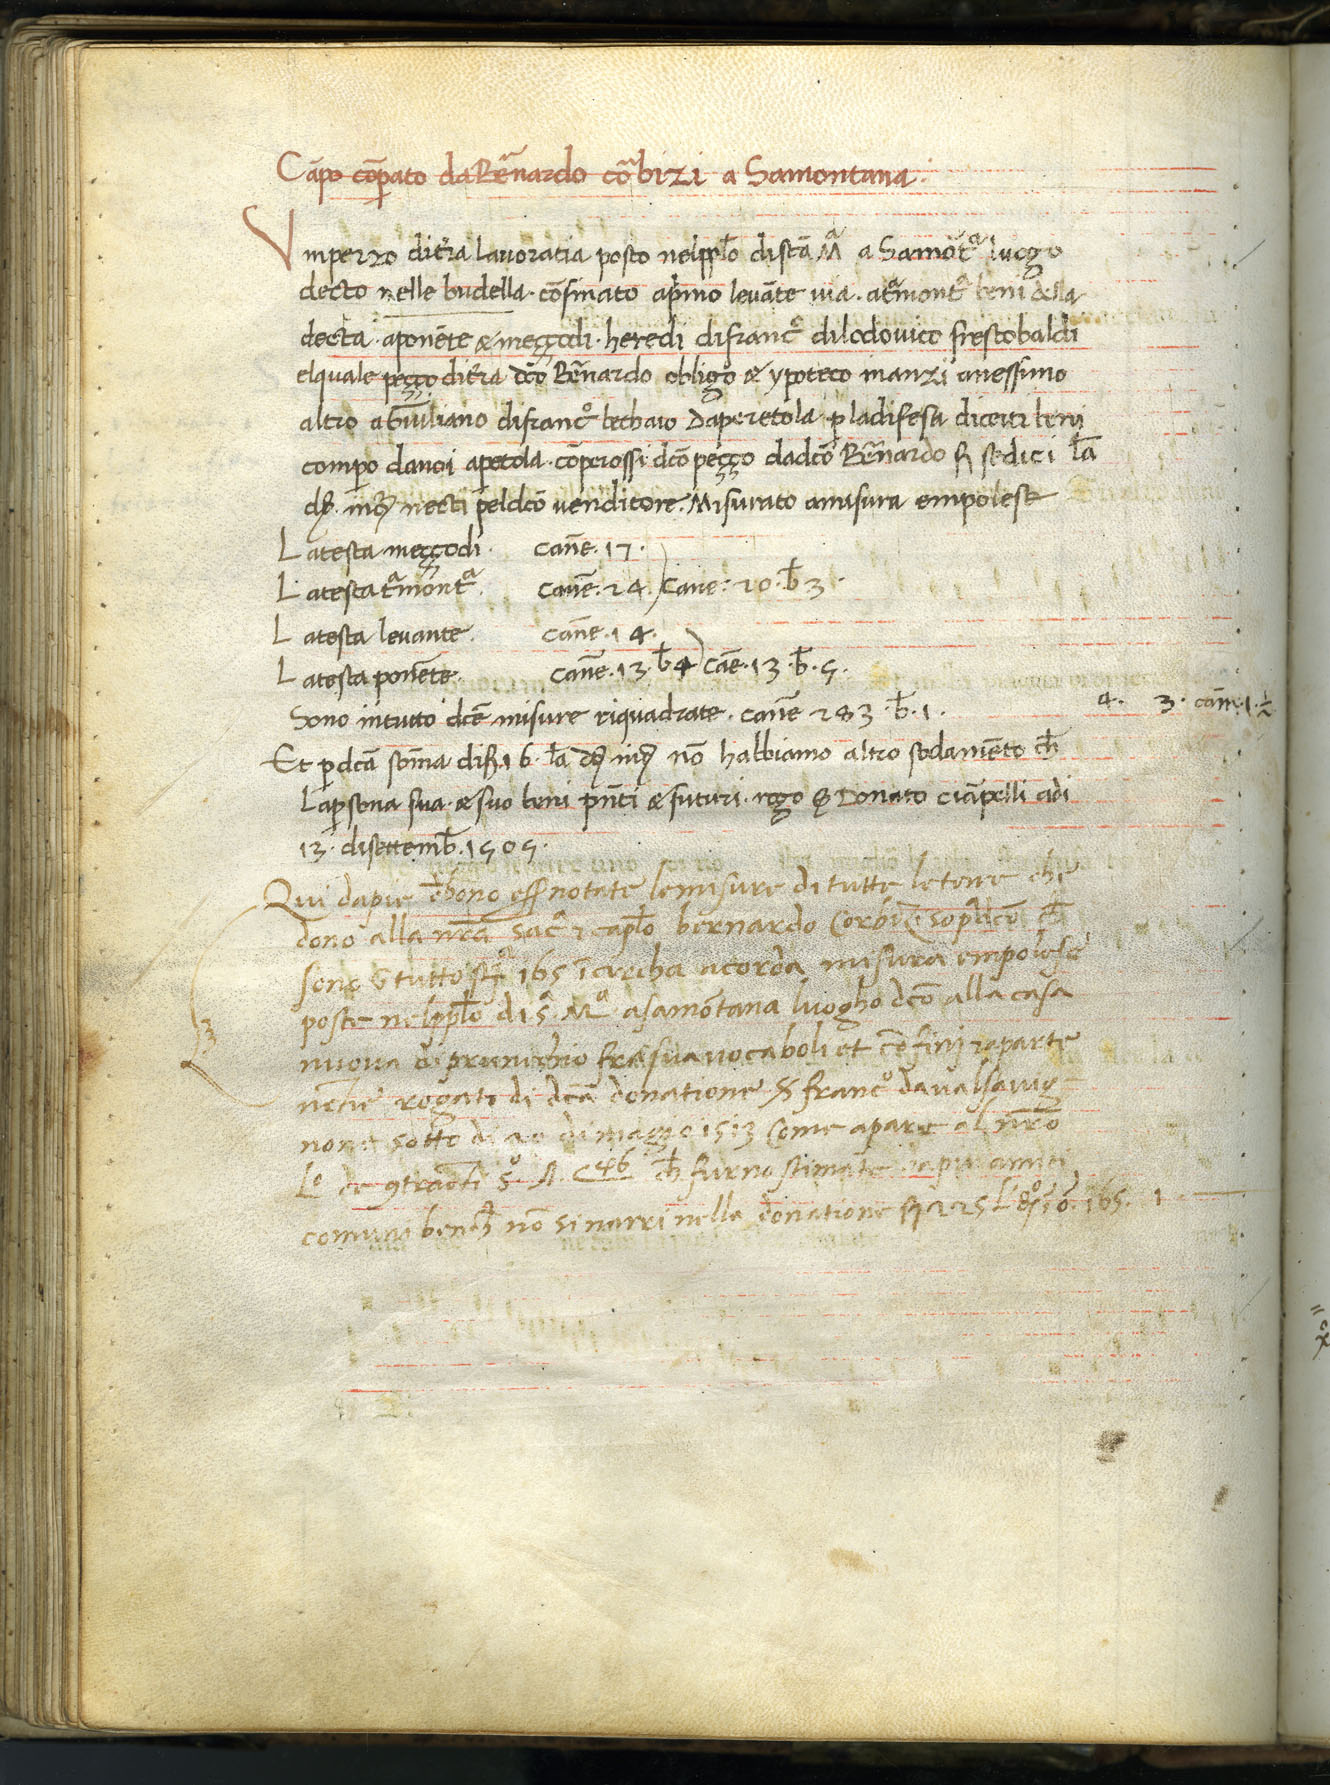 Cāpo cōpato da Bērnardo cōrbizi a Samontana.
Vnperzo ditr̄ra lavoratia posto nelpplo discā Mᵃ a Samōtᵃ luogo
decto nelle budella. cōfinato aprimo levāte via. atᵃmontᵒ beni della
decta. aponēte & meççodi. heredi difrancᵒ dilodovico frescobaldi
elquale peçço ditr̄ra dcō Bērnardo obligo & ypoteco inanzi anessuno
altro aGiuliano difrancᵒ bechaio daperetola pladifesa dicerti beni
compero danoi apetola. cōperossi dcō peçço dadcō Bērnardo sedici
necti peldcō venditore. Misurato amisura empolese
Latesta meççodi. canne. 17.
Latesta tᵃmontᵃ. canne. 24. Cane: 20. b̄ 3.
Latesta levante. canne. 14.
Latesta ponēte. canne. 13. b̄ 4 cāe. 13. b̄. 5.
Sono intutto dcē misure riquadrate. canne 283. b̄. 1. 4. 3. cann. 1. ½
Et pdcā sōma di 16. nō habbiamo altro sodamēto ch̄
Lapsona sua. & suo beni pn̄ti & futuri. rogo Donato ciāpelli adi
13. disettemb̄. 1505.
Qui dapie notate lemisure di tutte leterre che
dono alla nr̄a sac & caplo bernardo Corbiçi sopᵃdcō ch̄
sono tutto 165 acorda misura empolese
poste nelpplo di Sᵃ Mᵃ asamōtana luogho dcō alla casa
nuova vocaboli et cōfini
rogato di dcā donatione francᵒ
sotto di 20 di maggio 1513 Come apare al nr̄o
Lᵒ de 9tracti 46 ch̄ furno stimate
comuni nō si narri nella donatione 225 165. 1